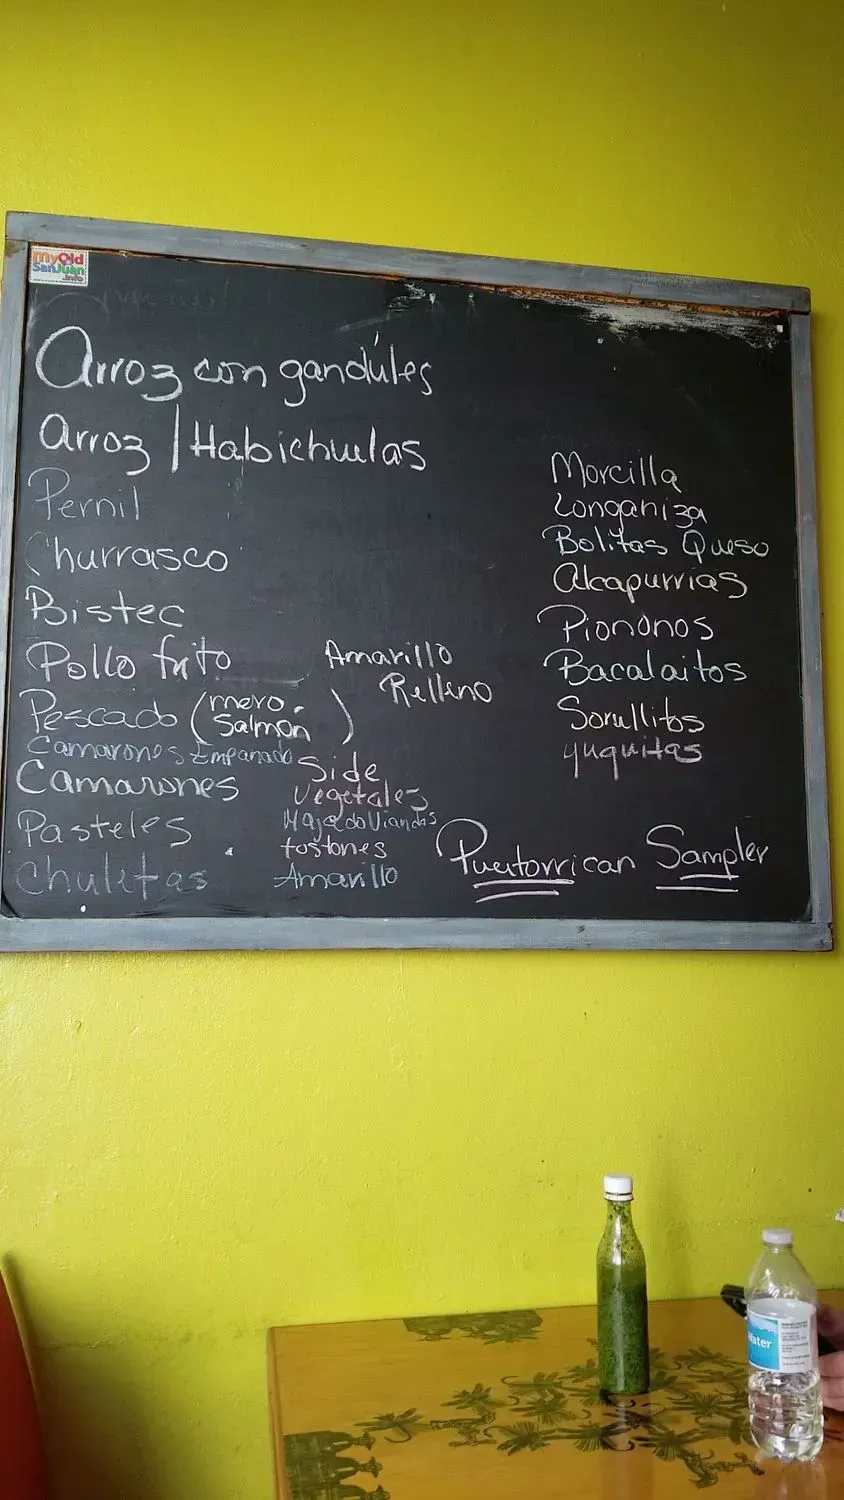 MyOld
SanJuan
.info
Arroz con gandúles
Arroz | Habichuelas
Pernil
Churrasco
Bistec
Pollo frito
Pescado (mero
Salmón)
Camarones Empanado
Camarones
Pasteles
Chuletas
Amarillo
Relleno
Side
Vegetales
Majado Viandas
tostones
Amarillo
Morcilla
Longaniza
Bolitas Queso
Alcapurrias
Piononos
Bacalaitos
Sorullitos
yuquitas
Puertorrican Sampler
Water